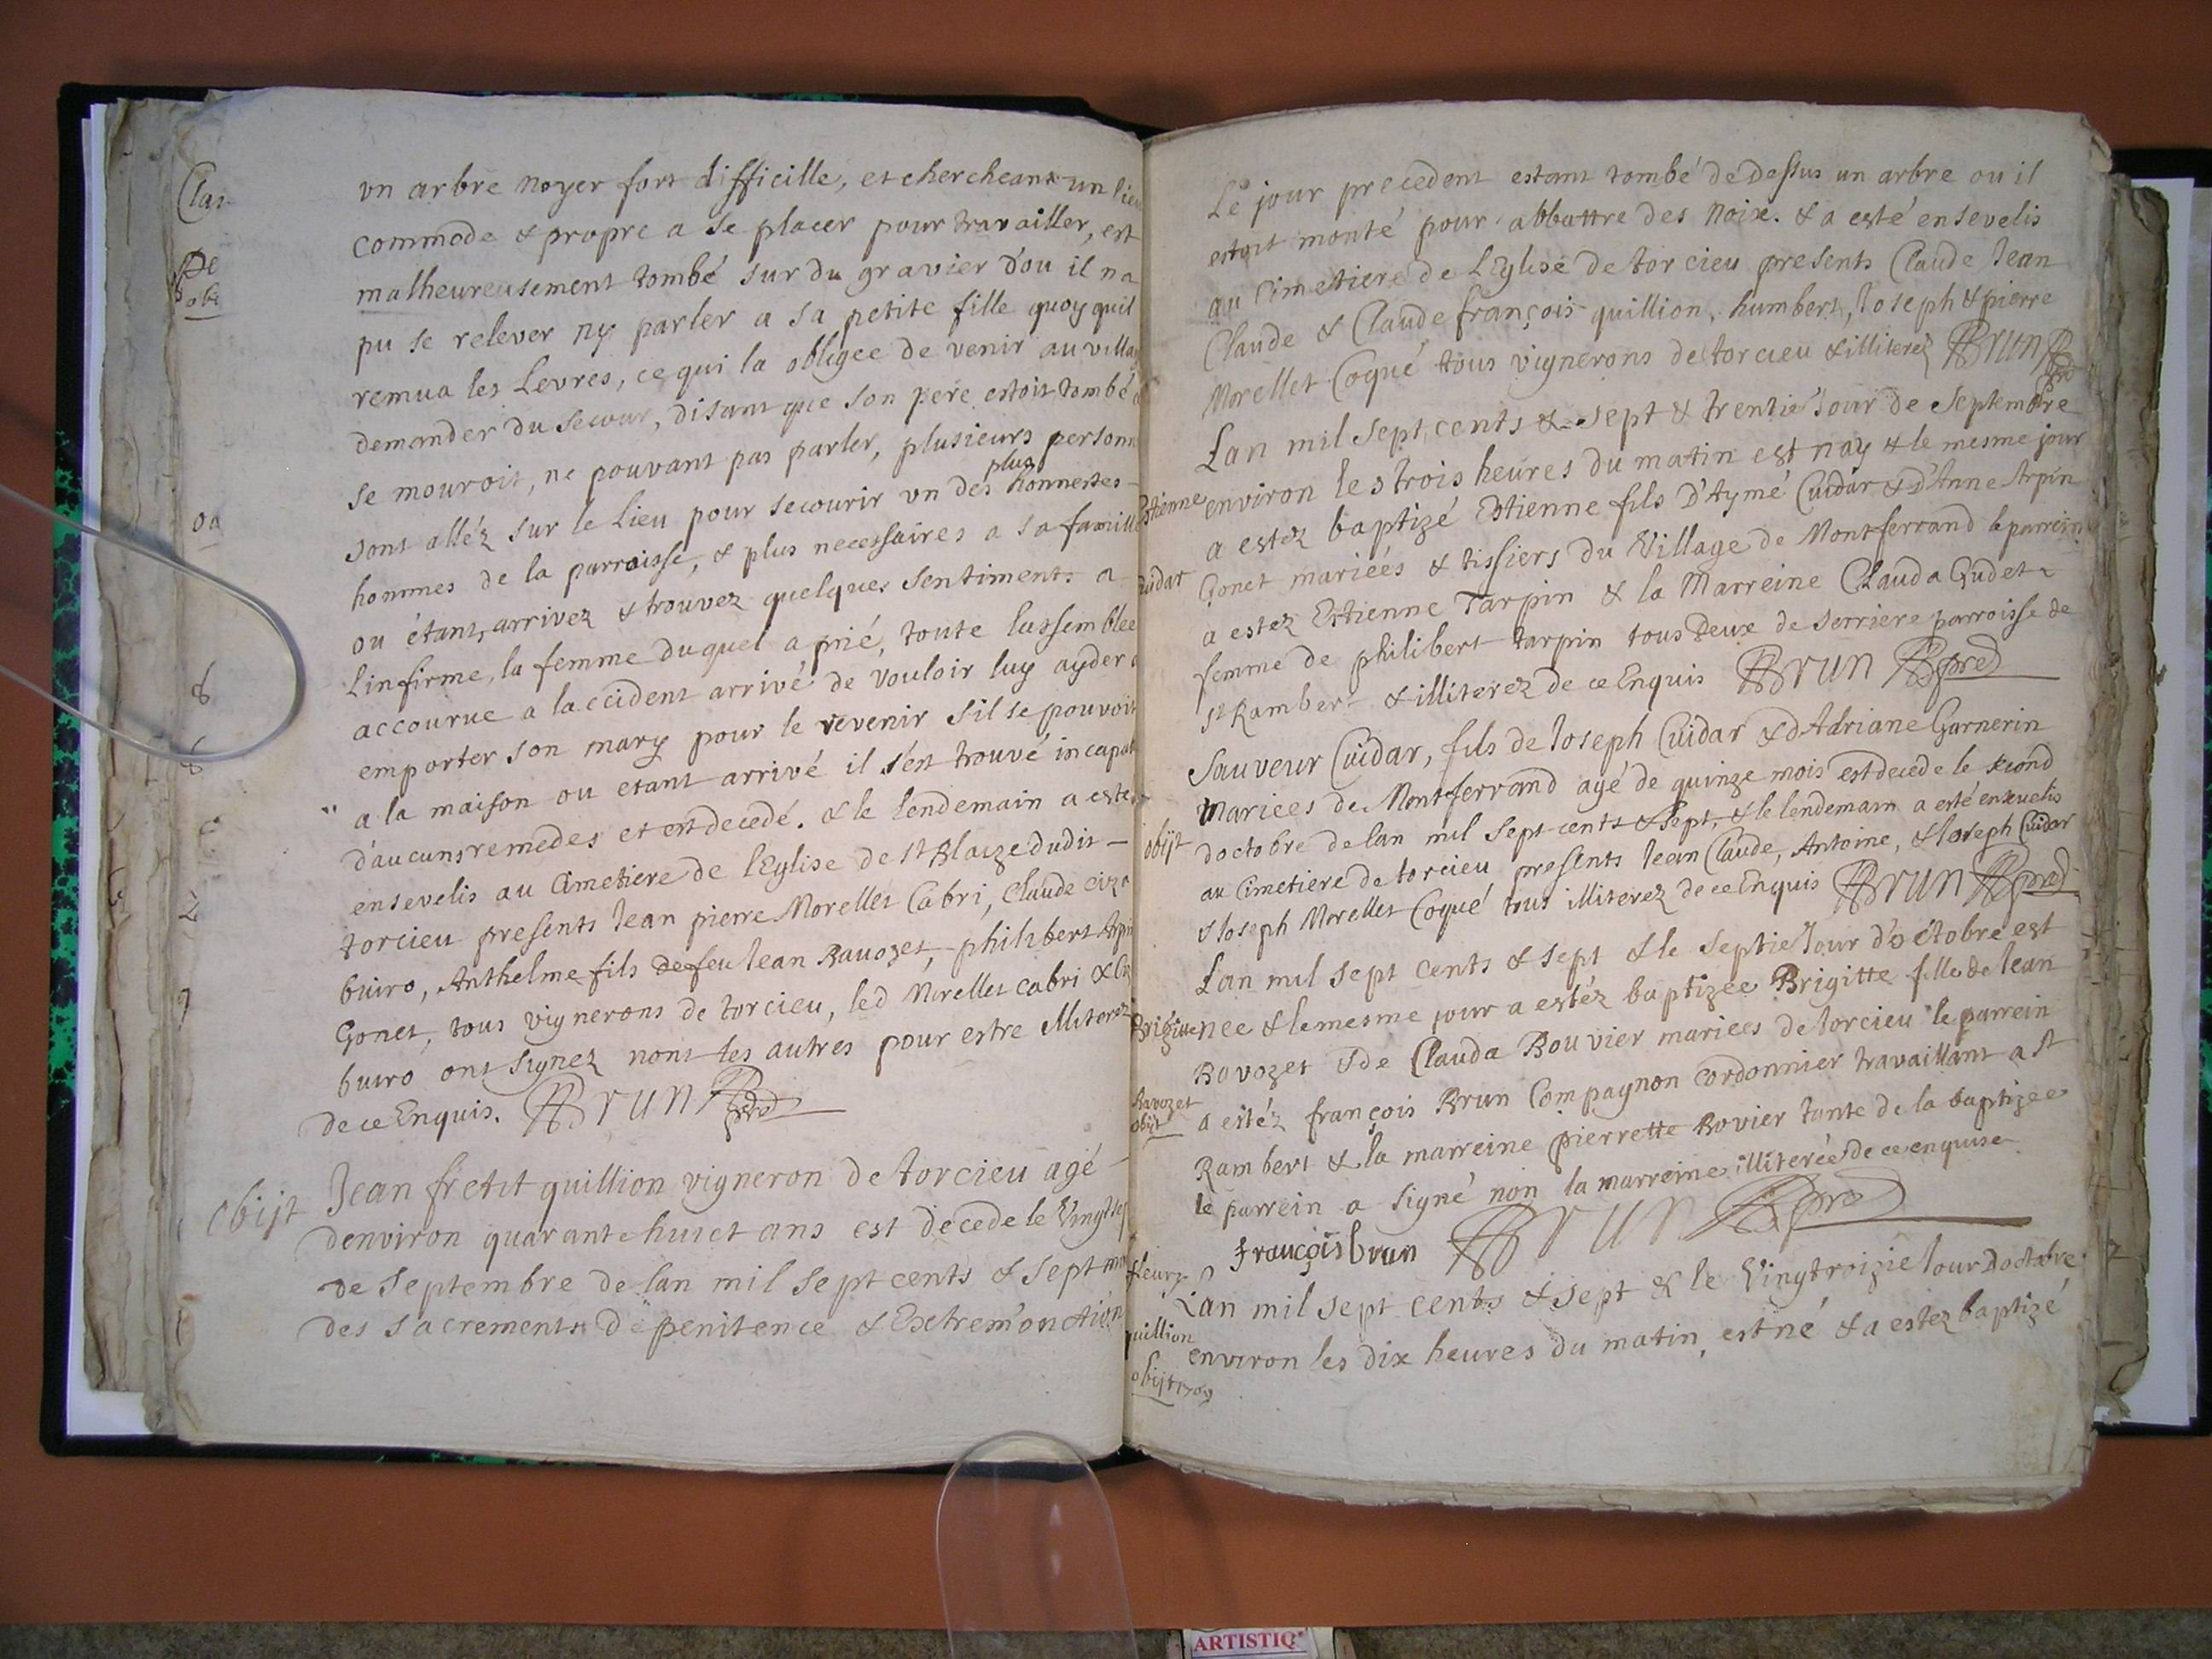 vn arbre noyer fort difficille, et chercheant un lieu
commode & propre a se placer pour travailler, est
malheureusement tombé sur du gravier d'ou il na
pu se relever ny parler a sa petite fille quoy quil
remua les Levres, ce qui la obligee de venir au villa
demander du secour, disant que son pere estoit tombé
se mouroit, ne pouvant pas parler, plusieurs personn
plus
sont alléz sur le Lieu pour secourir vn des honnestes
hommes de la parroisse, & plus necessaires a sa famille
ou étant arrivez & trouvez quelques sentiments a
Linfirme, la femme duquel a prié, toute lassemblee
accourue a laccident arrivé de vouloir luy ayder a
emporter son mary pour le revenir s'il se pouvoit
a la maison ou etant arrivé il s'est trouvé incapab
d'aucuns remedes et est decedé. & le lendemain a esté
ensevelis au Cimetiere de lEglise de st Blaize dudit
torcieu presents Jean pierre Morellet Cabri, Claude
buiro, Anthelme fils de feu Jean Ravozet, philibert Arpin
Gonet, tous vignerons de torcieu, led Morellet cabri &
buiro ont signez nont les autres pour estre illiterez
de ce Enquis. Brun
Obijt
Jean quillion vigneron de torcieu agé
denviron quarante huict ans est decede le Vingt sep
de Septembre de lan mil sept cents & sept
des sacrements de penitence & Extrem'onction
Le jour precedent estant tombé de Dessus un arbre ou il
estoit monté pour abbattre des Noix. & a esté ensevelis
au Cimetiere de LEglise de torcieu presents Claude Jean
Claude & Claude françois quillion, humbert, Joseph & pierre
Morellet Coqué tous vignerons de torcieu & illiterez Brun
Lan mil sept cents & sept & trentie Jour de Septembre
Estienne
environ les trois heures du matin est nay & le mesme jour
a estez baptizé Estienne fils D'Aymé Cuidar & D'Anne Arpin
Cuidar
Gonet mariéés & tissiers du Village de Montferrand le parrein
a estez Estienne Tarpin & la Marreine Clauda Gudet
femme de philibert tarpin tous Deux de serriere parroisse de
st Rambert & illiterez de ce Enquis Brun pre
Sauveur Cuidar, fils de Joseph Cuidar & d'Adriane Garnerin
Mariees de Montferrand agé de quinze mois est decede le second
obijt
doctobre de lan mil sept cents & sept, & le lendemain a esté ensevelis
au Cimetiere de torcieu presents Jean Claude, Antoine, & Joseph Cuidar
& Joseph Morellet Coqué tous illiterez de ce Enquis Brun pre
Lan mil sept cents & sept & le septie Jour d'octobre est
Brigitte
nee & le mesme jour a estéz baptizee Brigitte fille de Jean
Ravozet & de Clauda Bouvier mariees de torcieu le parrein
Ravozet
obijt
a estéz françois Brun Compagnon Cordonnier travaillant a st
Rambert & la marreine pierrette Bovier tante de la baptizee
le parrein a signé non la marreine illiterée de ce enquise
françois brun Brun pre
fleury
Lan mil sept cents & sept & le Vingtroizie Jour Doctobre
quillion
environ les dix heures du matin, est né & a estez baptizé
obijt 1709
ARTISTIQ